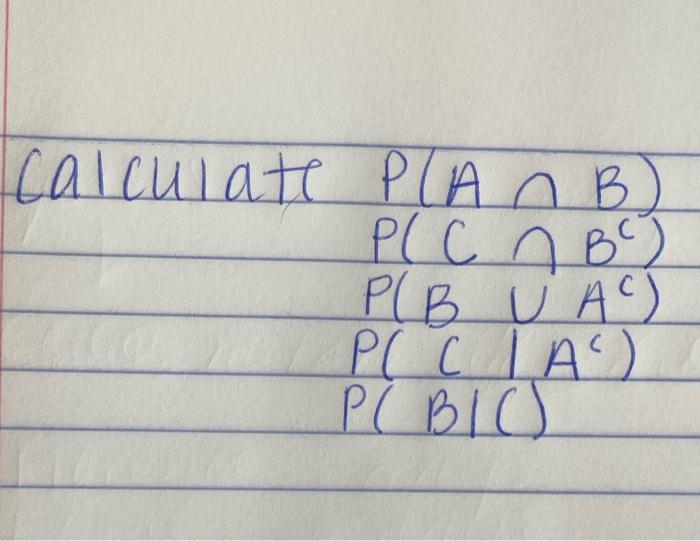 Calculate P(A ∩ B)
P( C ∩ Bᶜ)
P(B ∪ Aᶜ)
P( C | Aᶜ)
P( B | C)